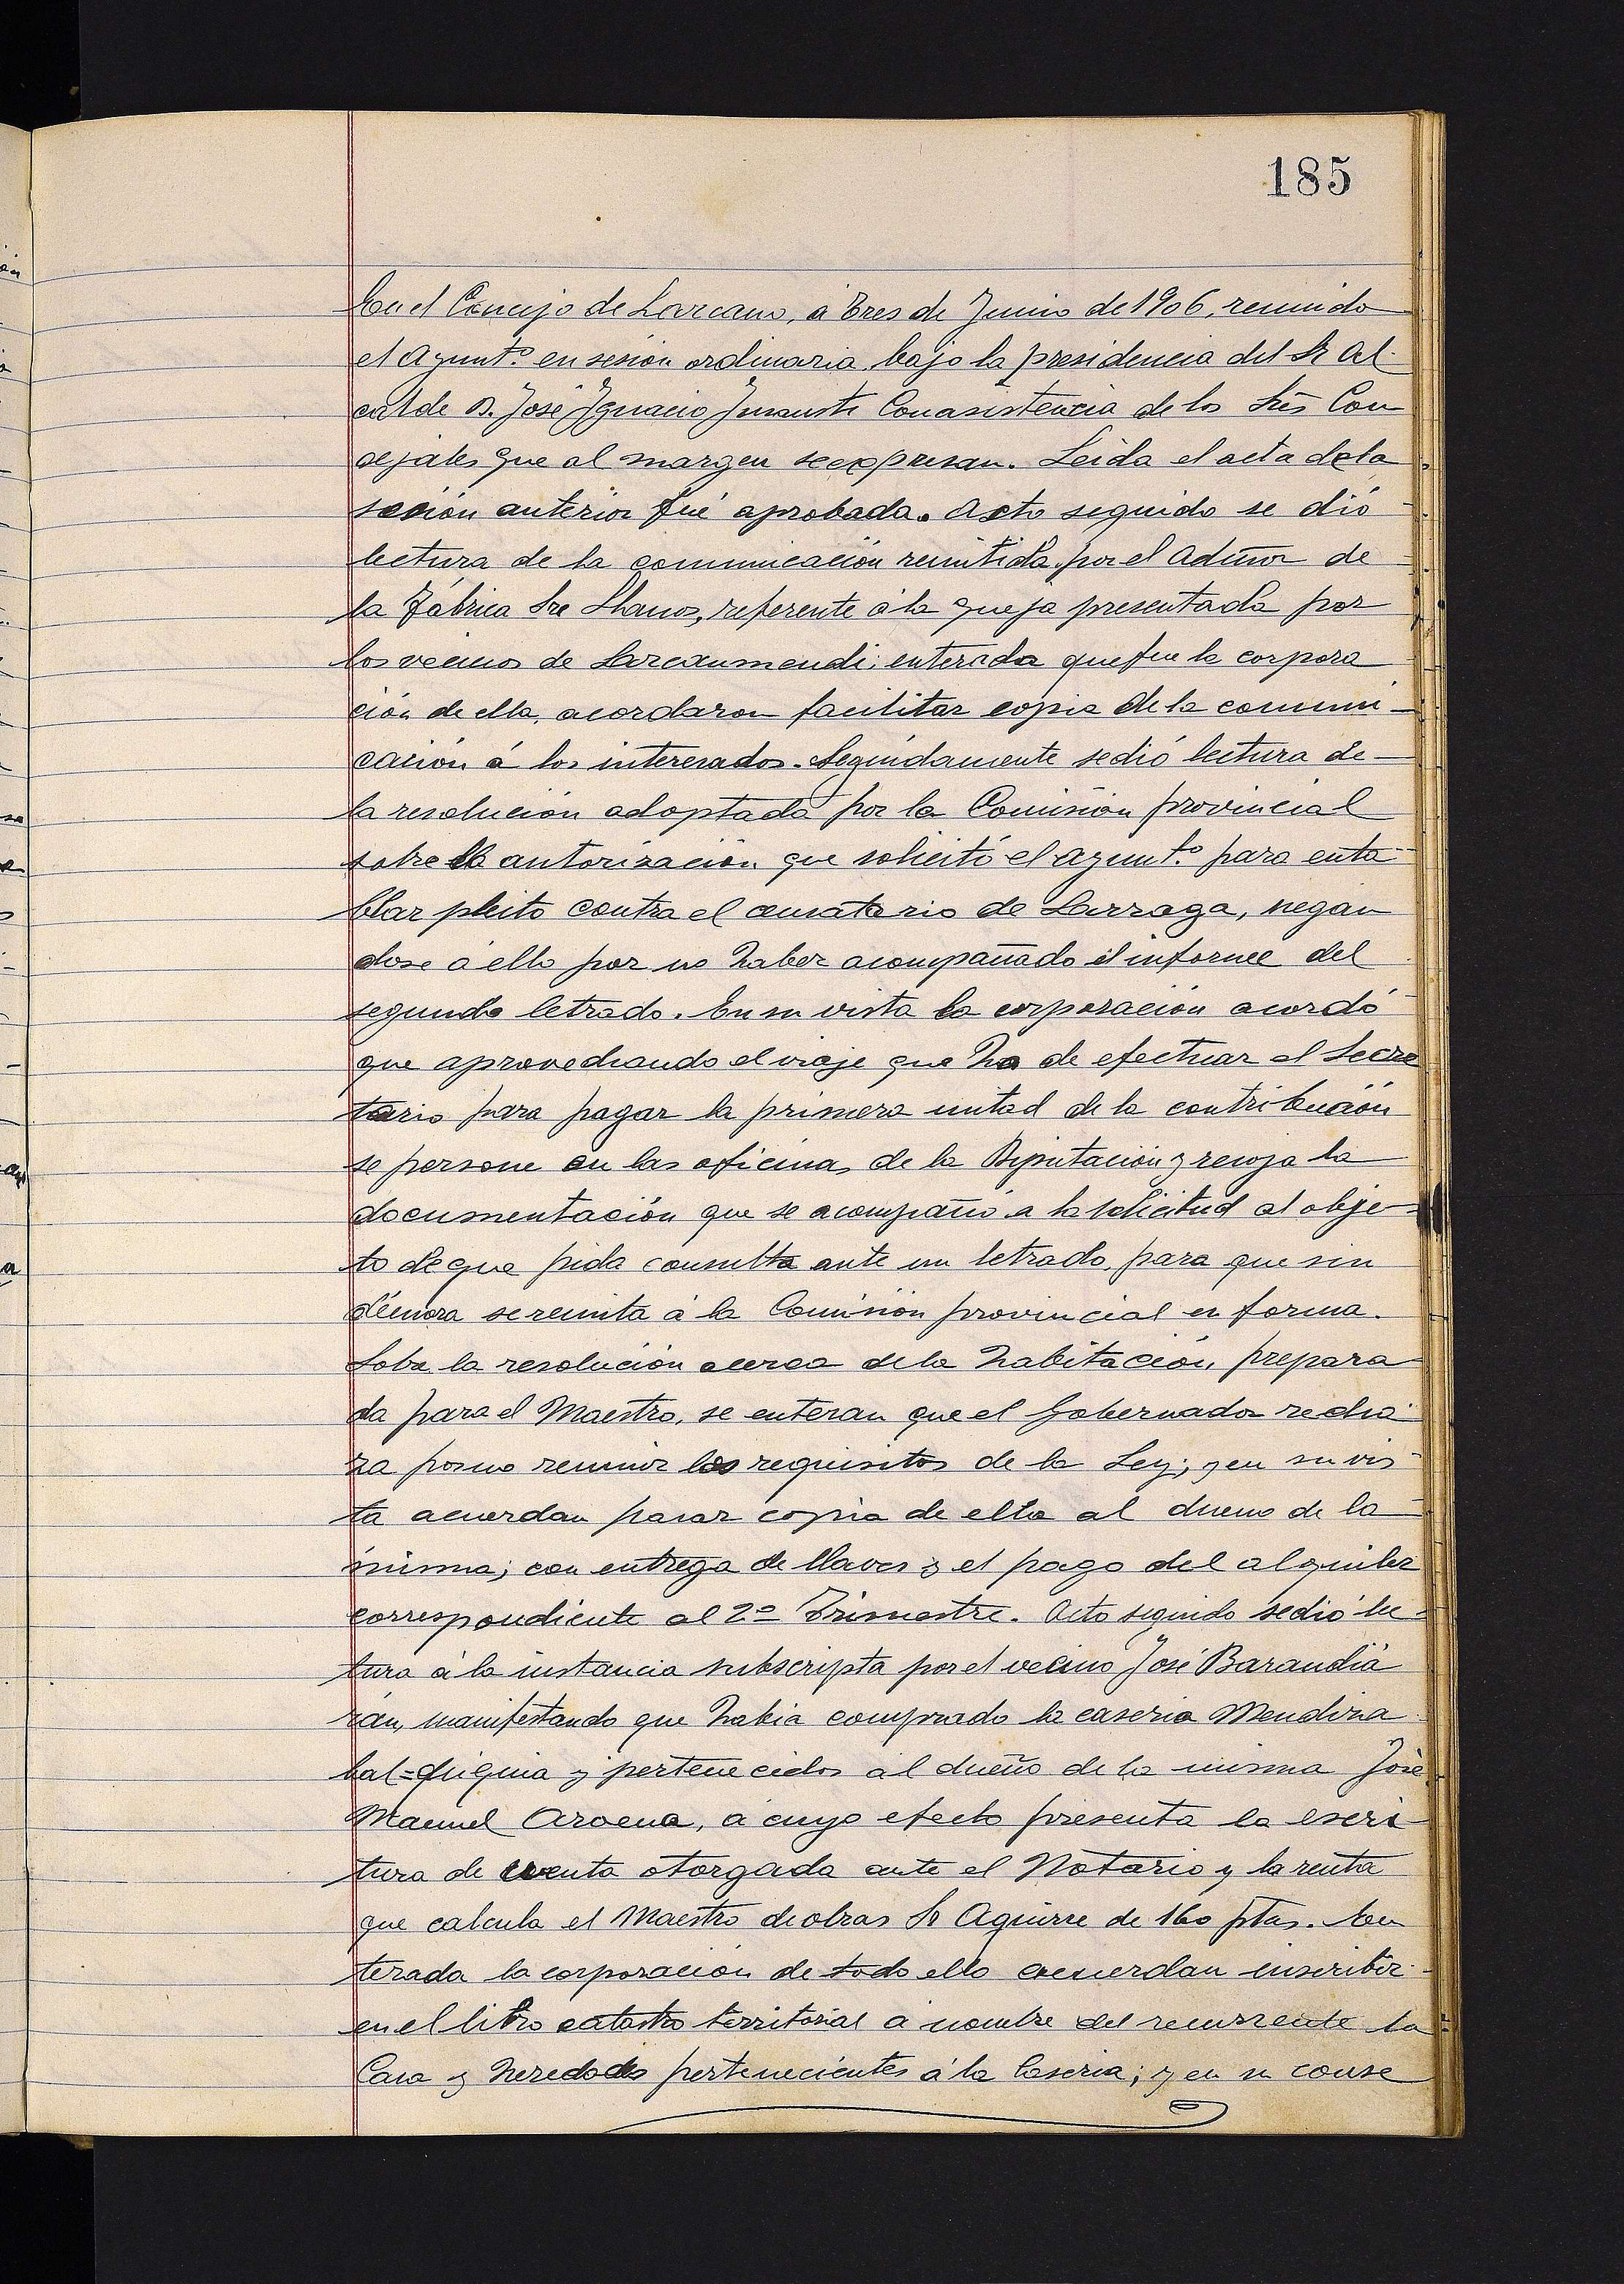 185
En el Concejo de Lazcano, á tres de Junio de 1906, reunido
el Ayunt.º en sesión ordinaria bajo la presidencia del Sr Al-
calde D. José Ygnacio Con asistencia de los Srēs Con
sejales que al margen se expresan. Leida el acta de la
sesión anterior fué aprobada. Acto seguido se dió
lectura de la comunicación remitida por el Admor de
la Fábrica Sre Llanos, referente á la queja presentada por
los vecinos de Lazcanmendi; enterada que fue la corpora
ción de ella, acordaron facilitar copia de la comuni-
cación á los interesados. Seguidamente se dió lectura de
la resolución adoptada por la Comisión provincial
sobre la autorización que solicitó el Ayunt.º para enta
blar pleito contra el censatario de Larraga, negan
dose á ello por no haber acompañado el informe del
segundo letrado. En su vista la corporación acordó
que aprovechando el viaje que ha de efectuar el Secre
tario para pagar la primera mitad de la contribución
se persone en las oficinas de la Diputación y recoja la
documentación que se acompañó a la solicitud al obje-
to de que pida consulta ante un letrado, para que sin
démora se remita á la Comisión provincial en forma.
Sobre la resolución acerca de la habitación prepara
da para el Maestro, se enteran que el Gobernador recha
za por no reunir los requisitos de la Ley; y en su vis
ta acuerdan pasar copia de ella al dueno de la
misma; con entrega de llaves y el pago del alquiler
correspondiente al 2º Trimestre. Acto seguido se dió lec-
tura á la instancia subscripta por el vecino José Barandiá
rán, manifestando que habia comprado la caseria Mendiza
bal= y pertenecidos al dueño de la misma José
Manuel Aroena, á cuyo efecto presenta la escri
tura de venta otorgada ante el Notario y la renta
que calcula el Maestro de obras Sr Aguirre de 160 ptas. En
terada la corporación de todo ello acuerdan inscribir
en el libro catastro territorial a nombre del recurrente la
Casa y heredades pertenecientes á la Caseria; y en su conse